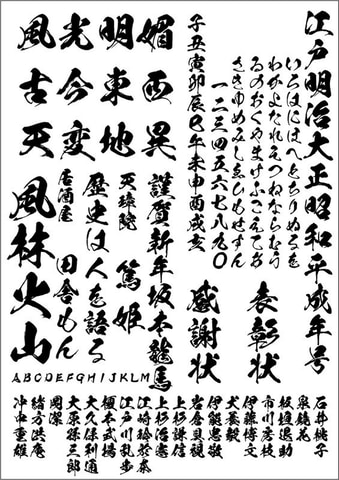 江戸明治大正昭和平成年号
いろはにほへとちりぬるを
わかよたれそつねならむう
ゐのおくやまけふこえてあ
さきゆめみしゑひもせすん
一二三四五六七八九〇
子丑寅卯辰巳午未申酉戌亥
表彰状
感謝状
媚西異
明東地
光今変
風古天
謹賀新年坂本龍馬
天璋院 篤姫
歴史は人を語る
居酒屋 田舎もん
風林火山
ABCDEFGHIJKLM
石井桃子
泉鏡花
板垣退助
市川房枝
伊藤博文
犬養毅
伊能忠敬
岩倉具視
上杉謙信
上杉治憲
江崎玲於奈
江戸川乱歩
榎本武揚
大久保利通
大原孫三郎
岡潔
緒方洪庵
沖中重雄